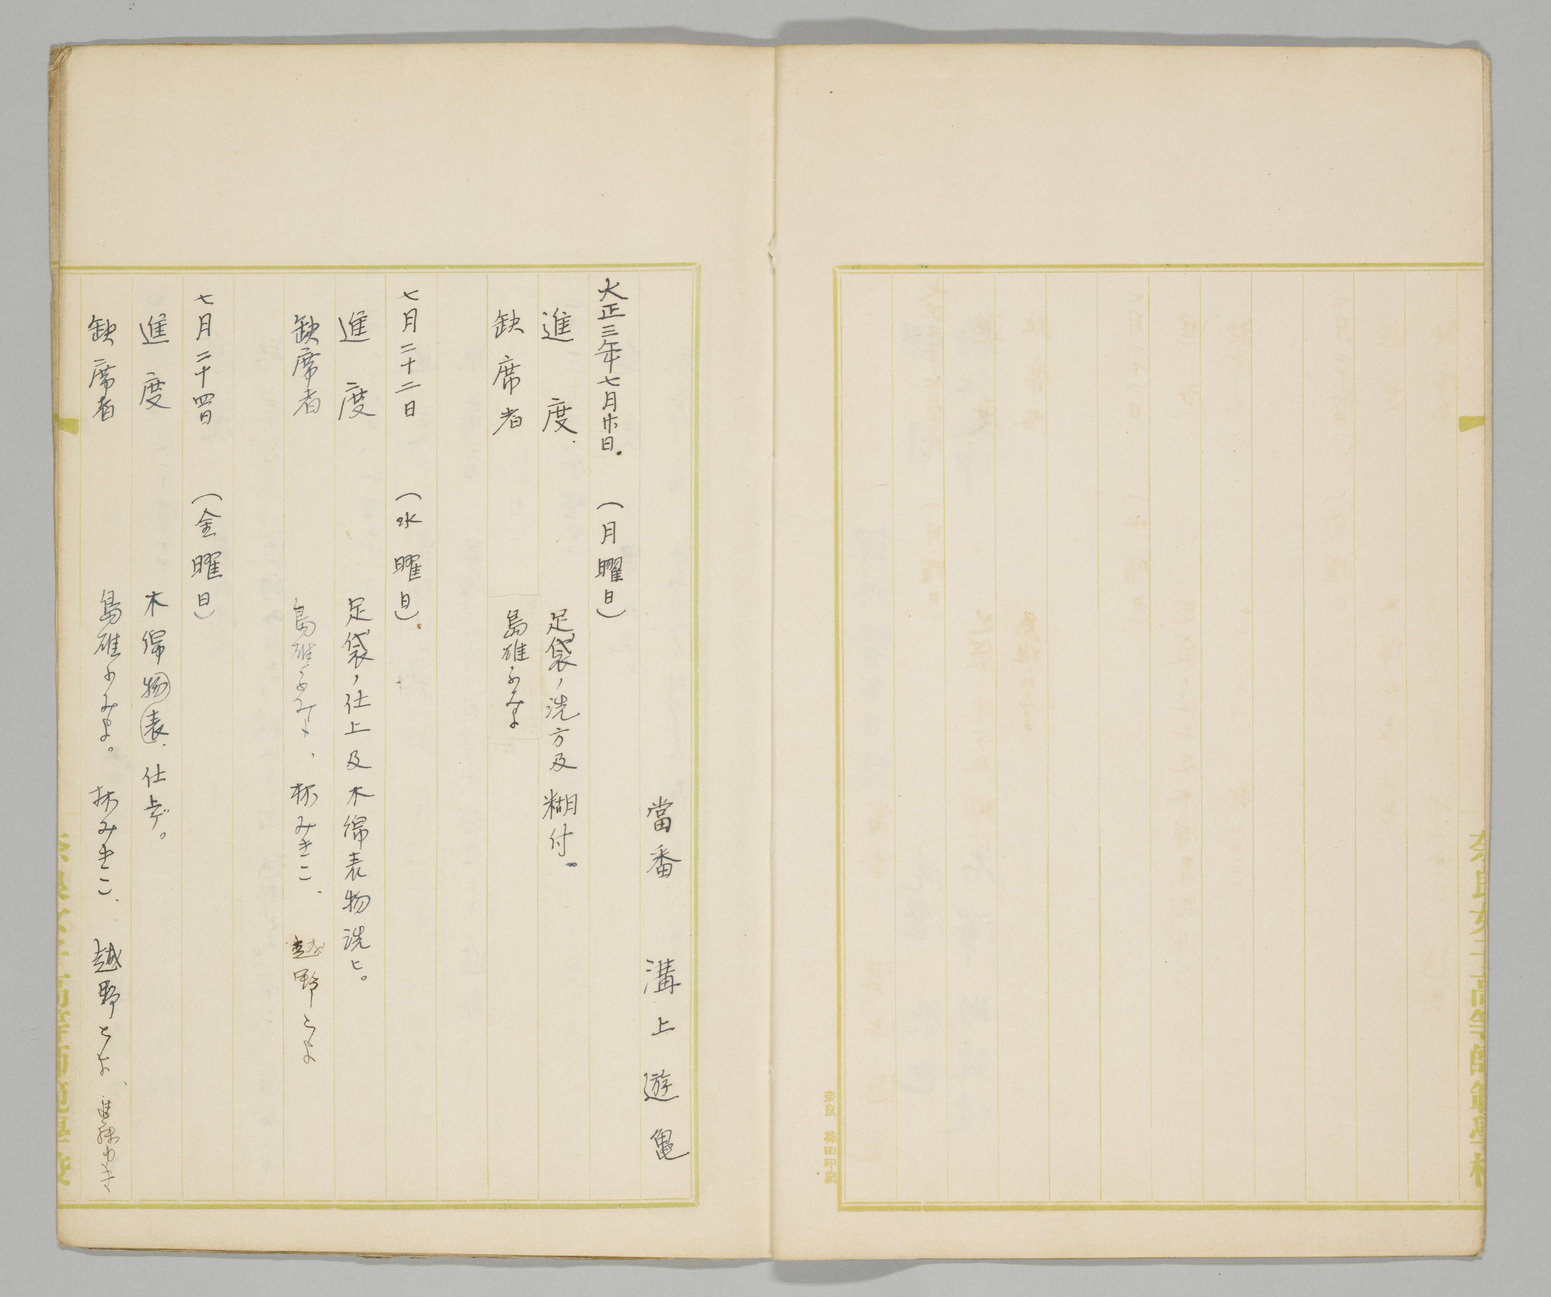 奈良女子高等師範學校
當番 溝上遊亀
大正三年七月廿日。 (月曜日)
進度. 足袋、洗方及糊付。
缺席者 島雄ふみよ
七月二十二日 (水曜日)
進度 足袋、仕上及木綿表物洗ヒ。
缺席者 島雄ふみよ、 林みきこ、 越野とよ
七月二十四日 (金曜日)
進度 木綿物表、仕上ゲ。
缺席者 島雄ふみよ。 林みきこ、 越野とよ、
奈良女子高等師範學校